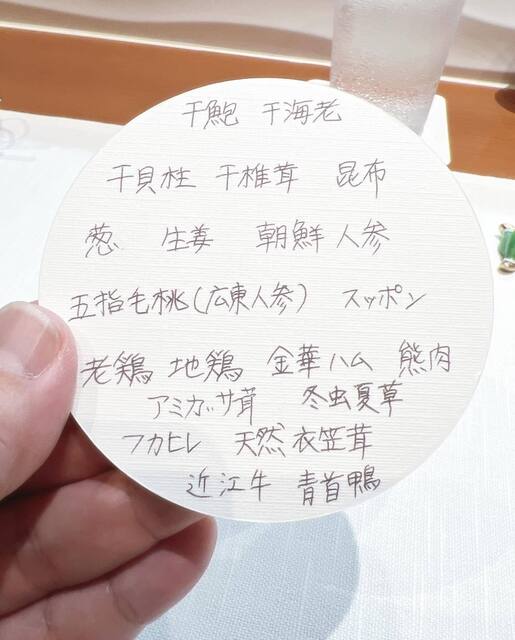 干鮑 干海老
干貝柱 干椎茸 昆布
葱 生姜 朝鮮人参
五指毛桃(広東人参) スッポン
老鶏 地鶏 金華ハム 熊肉
アミガッサ茸 冬虫夏草
フカヒレ 天然衣笠茸
近江牛 青首鴨